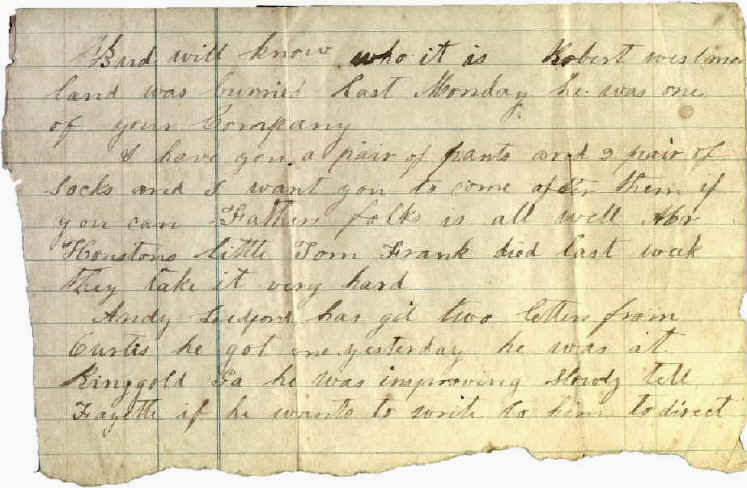 Bud will know who it is Robert westmore
land was burried Last Monday he was one
of your Company
I have you a pair of pants and 2 pair of
Socks and I want you to come after them if
you can Fathers folks is all well Mr
Houstons little Tom Frank died last week
they take it very hard
Andy Ledford has got two letters from
Curtis he got one yesterday he was at
Ringgold Ga he was improving slowly tell
Fayette if he wants to write to him to direct